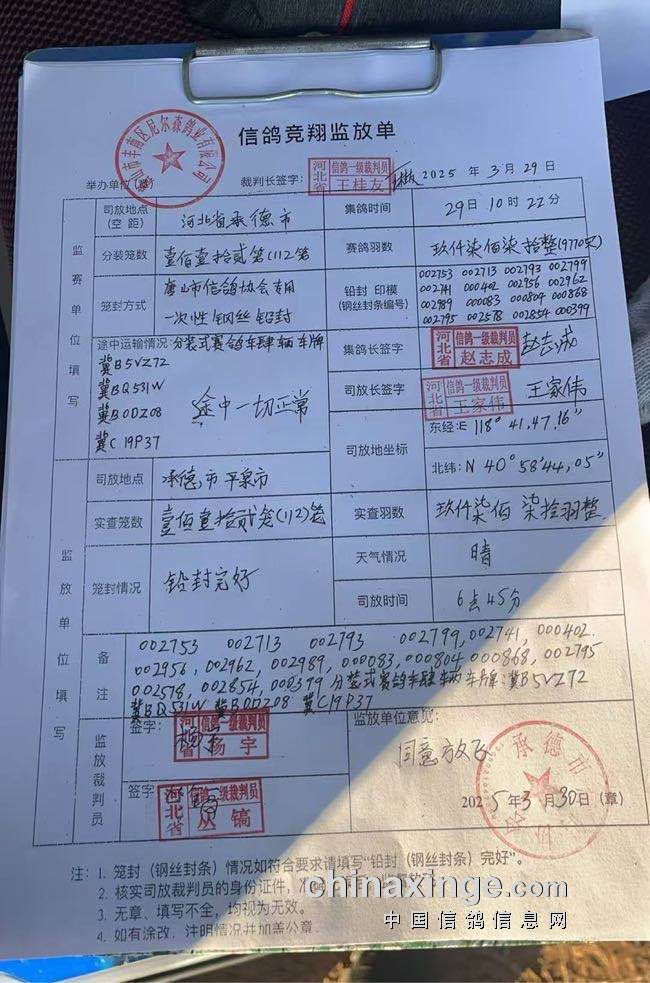 信鸽竞翔监放单
举办单位(章) 裁判长签字: 河北省 信鸽一级裁判员 王桂友 2025 年 3月 29日
监赛单位填写
司放地点(空 距) 河北省承德市 集鸽时间 29日 10时 22分
分装笼数 壹佰壹拾贰笼(112笼 赛鸽羽数 玖仟柒佰柒拾整(9770只)
笼封方式 唐山市信鸽协会专用
一次性钢丝铅封
铅封 印模
(钢丝封条编号)
002753 002713 002793 002799
002741 000402 002956 002962
002989 000083 000804 000868
002795 002578 002854 000399
途中运输情况: 分装式赛鸽车肆辆 车牌
冀B5VZ72
冀BQ531W
冀B0DZ08
冀C19P37
途中一切正常
集鸽长签字 河北省 信鸽一级裁判员 赵志成 赵志成
司放长签字 河北省 信鸽一级裁判员 王家伟 王家伟
司放地坐标 东经:E 118° 41,47,16"
北纬:N 40° 58'44,05"
监放单位填写
司放地点 承德市平泉市
实查笼数 壹佰壹拾贰笼(112)笼 实查羽数 玖仟柒佰柒拾羽整
笼封情况 铅封完好 天气情况 晴
司放时间 6点45分
备注
002753 002713 002793 002799,002741,000402.
002956,002962,002989,000083,000804 000868,002795
002578,002854,000399 分装式赛鸽车肆辆 车牌:冀B5VZ72
冀BQ531W 冀B0DZ08 冀C19P37
监放裁判员
签字: 河北省 信鸽一级裁判员 杨宇
签字 河北省 信鸽一级裁判员 丛镐
监放单位意见:
同意放飞
2025年3月30日(章)
承德市
注: 1. 笼封(钢丝封条)情况如符合要求请填写"铅封(钢丝封条)完好"。
2. 核实司放裁判员的身份证件,
3. 无章、填写不全,均视为无效。
4. 如有涂改,注明情况并加盖公章.
chinaxinge.com
中国信鸽信息网